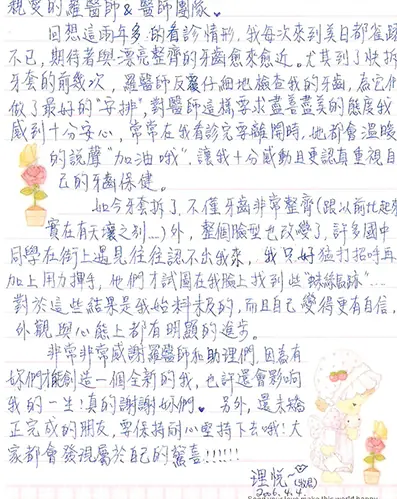 親愛的羅醫師&醫師團隊。
回想這兩年多的看診情形,我每次來到美日都雀躍
不已,期待者與漂亮整齊的牙齒愈來愈近。尤其到了快拆
牙套的前幾次,羅醫師反覆仔細地檢查我的牙齒,為它們
做了最好的"安排",對醫師這樣要求盡善盡美的態度我
感到十分安心,常常在我看診完要離開時,她都會溫暖
的說聲"加油哦",讓我十分感動且更認真重視自
己的牙齒保健。
如今牙套拆了,不僅牙齒非常整齊(跟以前比起來
實在有天壤之別...)外,整個臉型也改變了,許多國中
同學在街上遇見往往認不出我來,我只好猛打招呼再
加上用力揮手,他們才試圖在我臉上找到些"蛛絲馬跡"...
對於這些結果是我始料未及的,而且自己變得更有自信,
外觀與心態上都有明顯的進步。
非常非常感謝羅醫師和助理們,因為有
妳們才能創造一個全新的我,也許還會影响
我的一生!真的謝謝妳們。另外,還未矯
正完成的朋友,要保持耐心堅持下去哦!大
家都會發現屬於自己的驚喜!!!!!!
理悅~
2006.4.4.